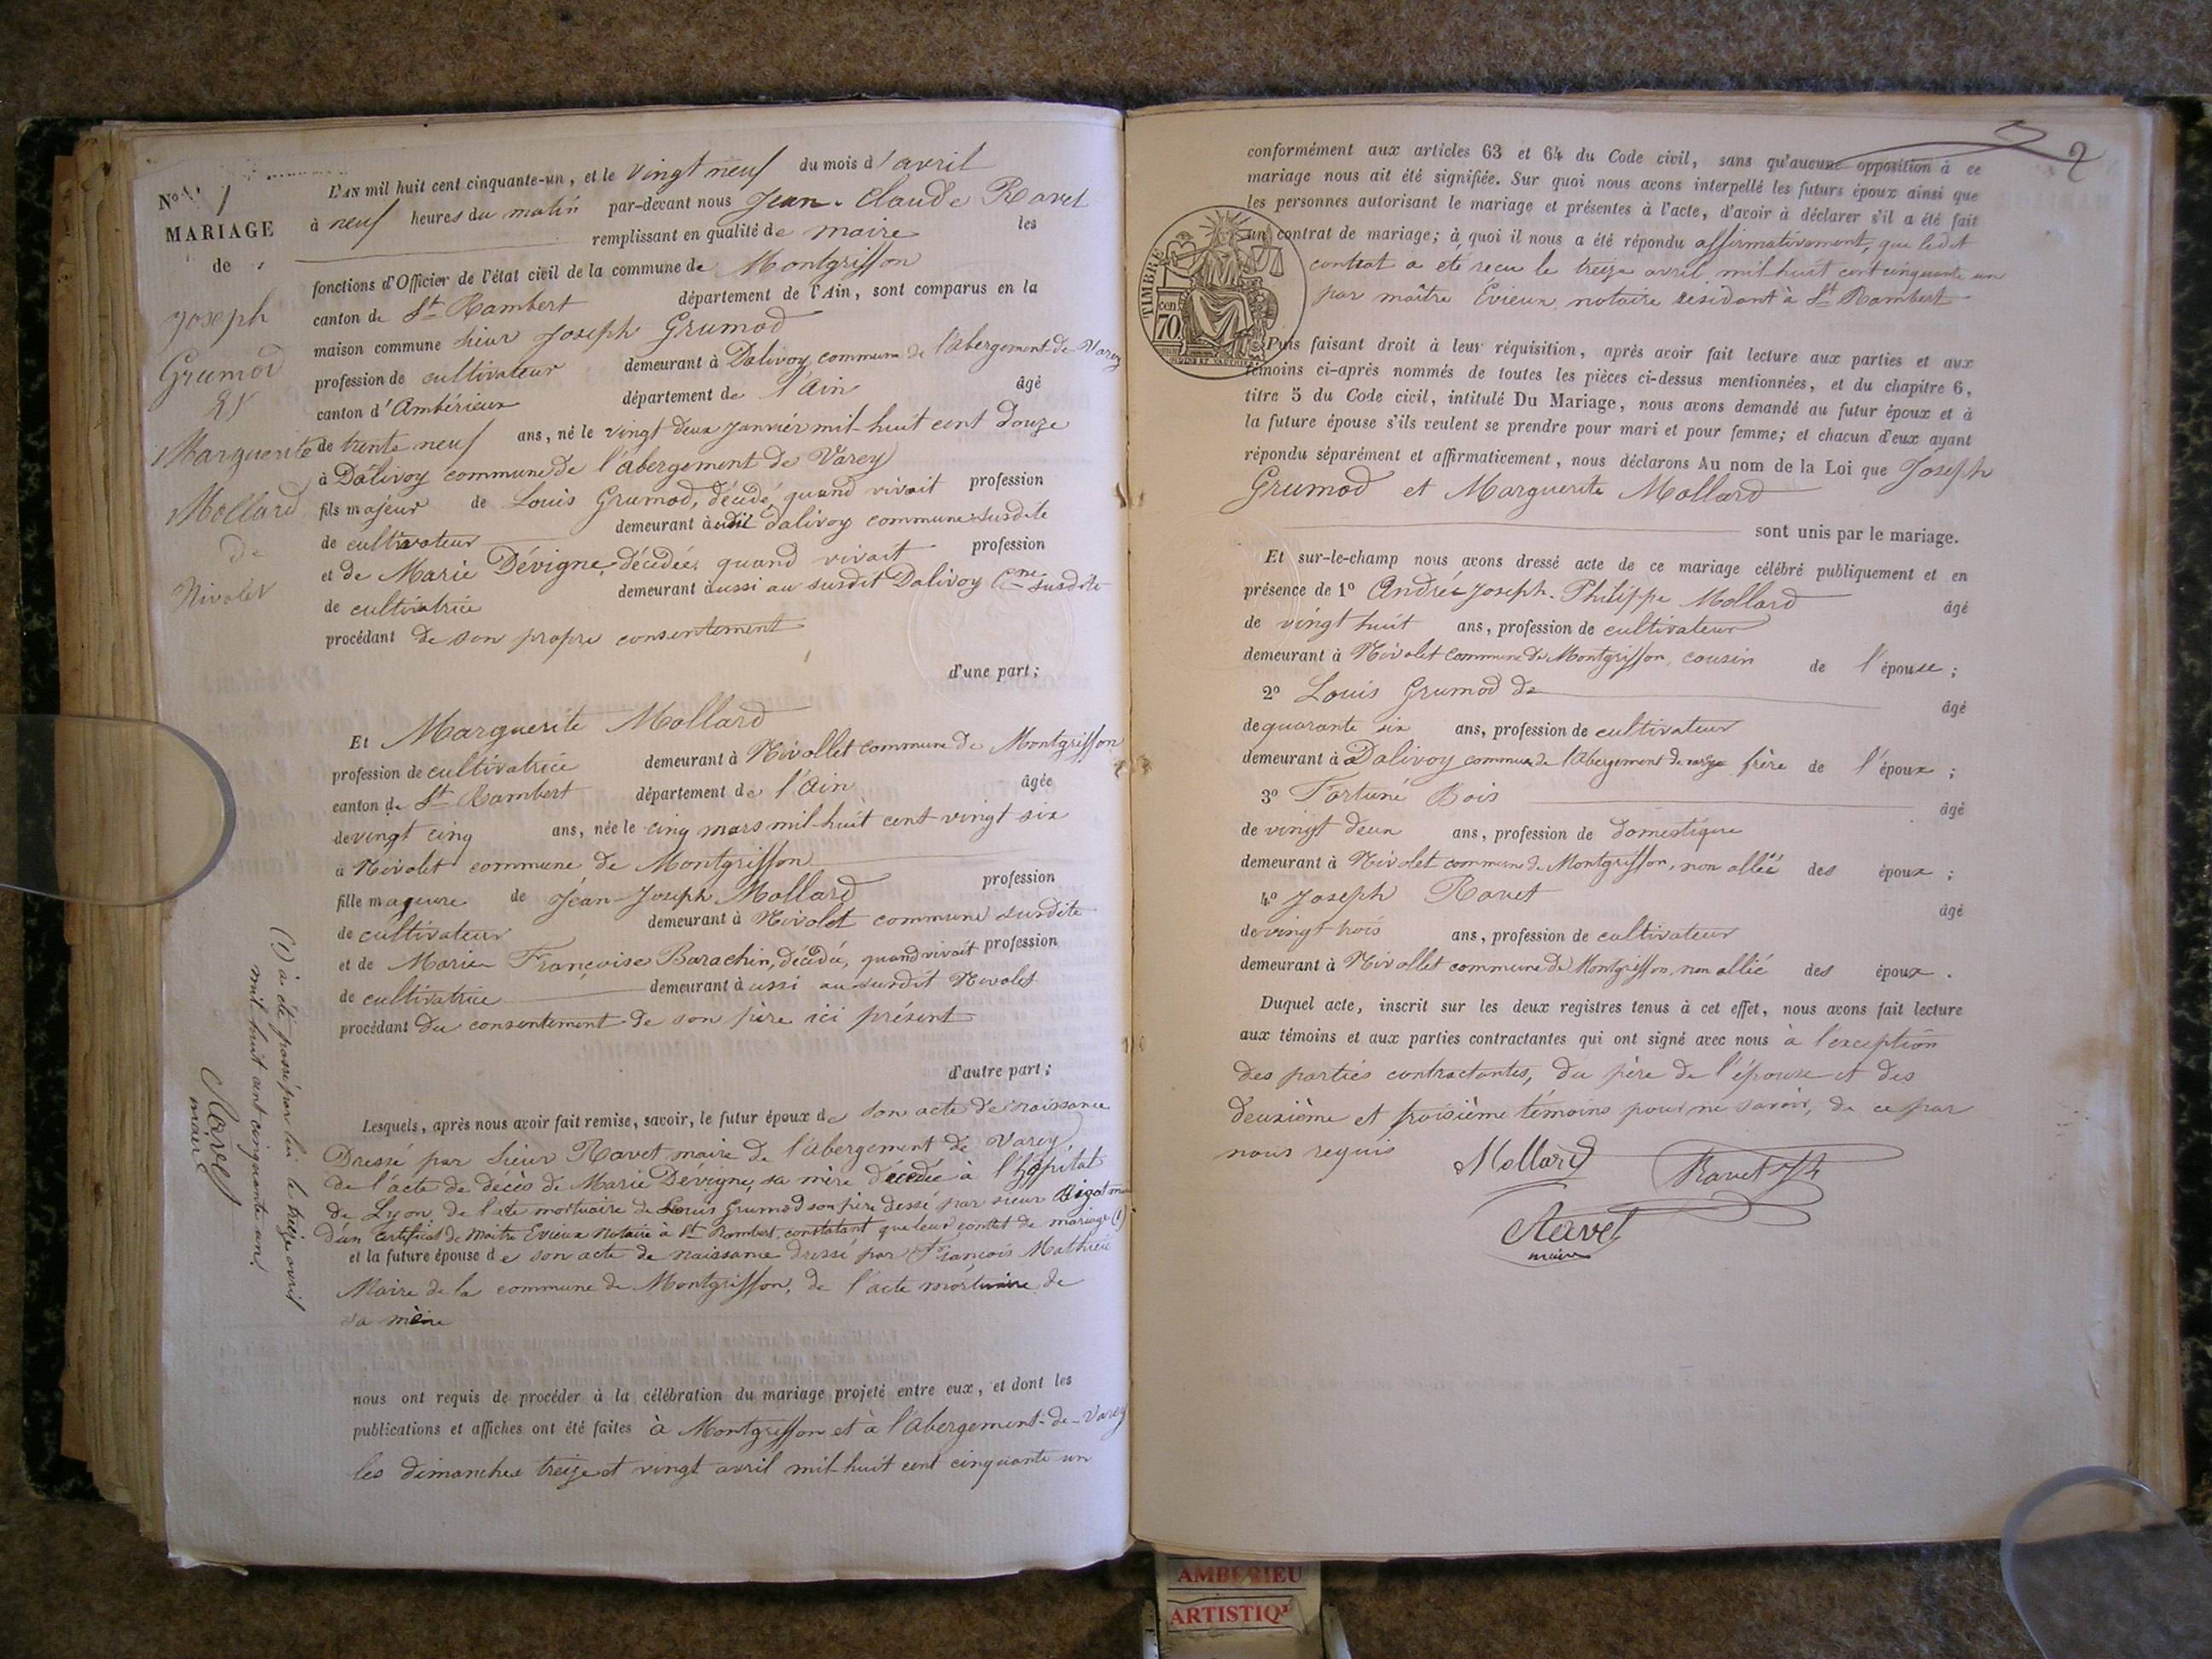 No 1
MARIAGE
de
Joseph
Grumod
et
Marguerite
Mollard
de
Nivolet
L'AN mil huit cent cinquante-un, et le vingt neuf du mois d'avril
à neuf heures du matin par-devant nous Jean-Claude Ravet
remplissant en qualité de maire les
fonctions d'Officier de l'état civil de la commune de Montgriffon
canton de St Rambert département de l'Ain, sont comparus en la
maison commune sieur Joseph Grumod
profession de cultivateur demeurant à Dalivoy commune de l'abergement-de-Varey
canton d'Ambérieux département de l'Ain âgé
de trente neuf ans, né le vingt deux janvier mil-huit cent douze
à Dalivoy commune de l'abergement de Varey
fils majeur de Louis Grumod, décédé, quand vivait profession
de cultivateur demeurant audit Dalivoy commune susdite
et de Marie Dévigne, décédée, quand vivait profession
de cultivatrice demeurant aussi au susdit Dalivoy Cne susdite
procédant de son propre consentement
d'une part;
Et Marguerite Mollard
profession de cultivatrice demeurant à Nivollet commune de Montgriffon
canton de St Rambert département de l'Ain âgée
de vingt cinq ans, née le cinq mars mil-huit cent vingt six
à Nivolet commune de Montgriffon
fille majeure de Jean-Joseph Mollard profession
de cultivateur demeurant à Nivolet commune susdite
et de Marie Françoise Barachin, décédée, quand vivait profession
de cultivatrice demeurant aussi au susdit Nivolet
procédant du consentement de son père ici présent
d'autre part;
Lesquels, après nous avoir fait remise, savoir, le futur époux de son acte de naissance
Dressé par sieur Ravet maire de l'abergement de Varey,
de l'acte de décès de Marie Dévigne, sa mère décédée à l'hôpital
de Lyon, de l'acte mortuaire de Louis Grumod son père dressé par sieur Rigot
d'un certificat de Maitre Evieux Notaire à St Rambert, constatant que leur contrat de mariage (1)
et la future épouse de son acte de naissance dressé par François Mathieu
Maire de la commune de Montgriffon, de l'acte mortuaire de
sa mère
(1) à été passé par lui le treize avril
mil huit cent cinquante un
Ravet
maire
nous ont requis de procéder à la célébration du mariage projeté entre eux, et dont les
publications et affiches ont été faites à Montgriffon et à l'abergement-de-Varey
les dimanches treize et vingt avril mil-huit cent cinquante un
2
conformément aux articles 63 et 64 du Code civil, sans qu'aucune opposition à ce
mariage nous ait été signifiée. Sur quoi nous avons interpellé les futurs époux ainsi que
les personnes autorisant le mariage et présentes à l'acte, d'avoir à déclarer s'il a été fait
un contrat de mariage; à quoi il nous a été répondu affirmativement, que ledit
contrat a été reçu le treize avril mil-huit cent cinquante un
par maître Évieux notaire résidant à St Rambert
TIMBRE
70 cen
Puis faisant droit à leur réquisition, après avoir fait lecture aux parties et aux
témoins ci-après nommés de toutes les pièces ci-dessus mentionnées, et du chapitre 6,
titre 5 du Code civil, intitulé Du Mariage, nous avons demandé au futur époux et à
la future épouse s'ils veulent se prendre pour mari et pour femme; et chacun d'eux ayant
répondu séparément et affirmativement, nous déclarons Au nom de la Loi que Joseph
Grumod et Marguerite Mollard
sont unis par le mariage.
Et sur-le-champ nous avons dressé acte de ce mariage célébré publiquement et en
présence de 1o André-Joseph-Philippe Mollard âgé
de vingt huit ans, profession de cultivateur
demeurant à Nivolet commune de Montgriffon, cousin de l'épouse;
2o Louis Grumod de âgé
de quarante six ans, profession de cultivateur
demeurant à Dalivoy commune de l'abergement de varey frère de l'époux;
3o Fortuné Bois âgé
de vingt deux ans, profession de domestique
demeurant à Nivolet commune de Montgriffon, non allié des époux;
4o Joseph Ravet âgé
de vingt trois ans, profession de cultivateur
demeurant à Nivollet commune de Montgriffon, non allié des époux.
Duquel acte, inscrit sur les deux registres tenus à cet effet, nous avons fait lecture
aux témoins et aux parties contractantes qui ont signé avec nous à l'exception
des parties contractantes, du père de l'épouse et des
deuxième et troisième témoins pour ne savoir, de ce par
nous requis
Mollard Ravet Jh
Ravet
maire
AMBERIEU
ARTISTIQ